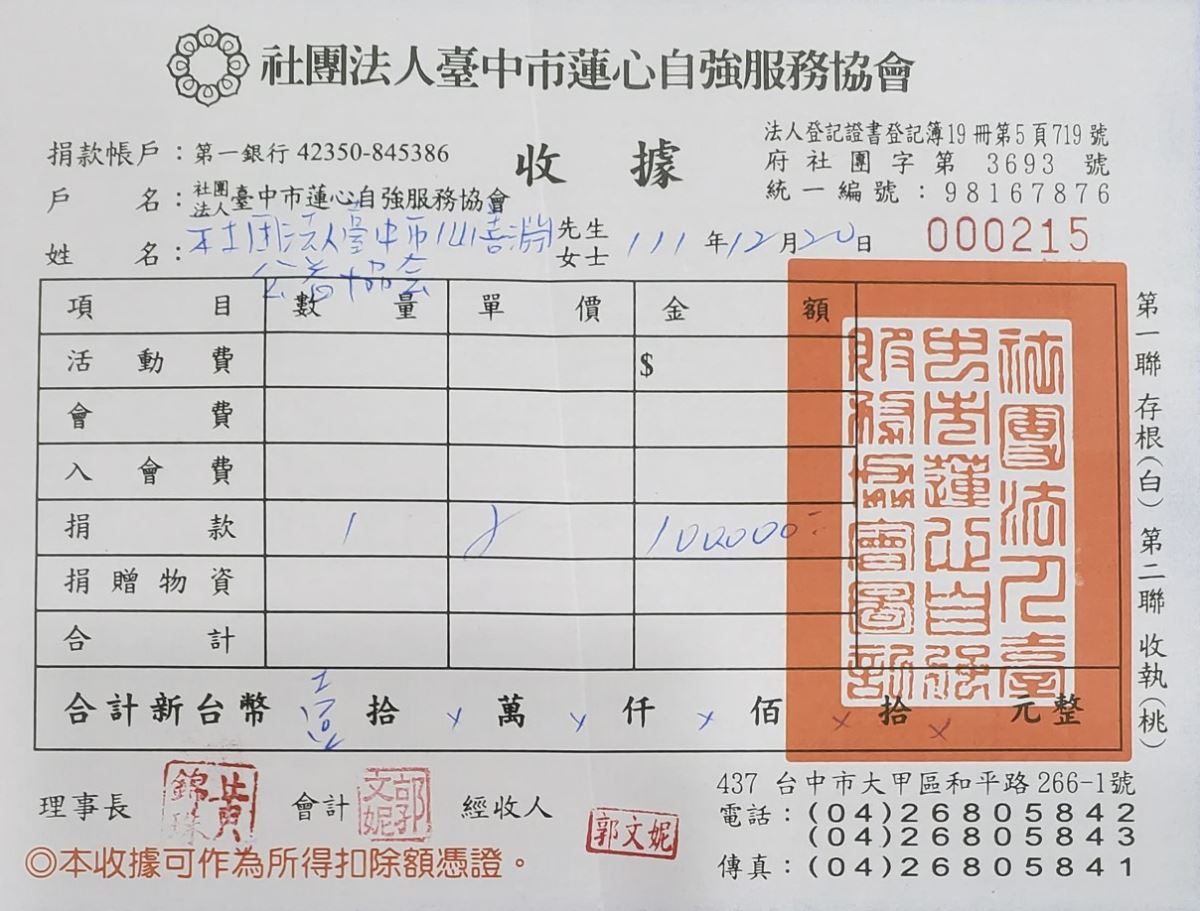 社團法人臺中市蓮心自強服務協會
捐款帳戶：第一銀行 42350-845386
收據
法人登記證書登記簿19冊第5頁719號
府社團字第 3693 號
統一編號：98167876
戶名：社團法人臺中市蓮心自強服務協會
000215
姓名：社團法人臺中市仙善淵公益協會 先生女士 111年12月20日
項目 數量 單價 金額
活動費 $
會費
入會費
捐款 1 100000
捐贈物資
合計
合計新台幣 壹拾 x 萬 x 仟 x 佰 x 拾 x 元整
社團法人臺中市蓮心自強服務協會圖記
第一聯 存根(白) 第二聯 收執(桃)
理事長 黃錦珠 會計 郭文妮 經收人 郭文妮
437 台中市大甲區和平路 266-1號
電話：(04)26805842
(04)26805843
傳真：(04)26805841
◎本收據可作為所得扣除額憑證。